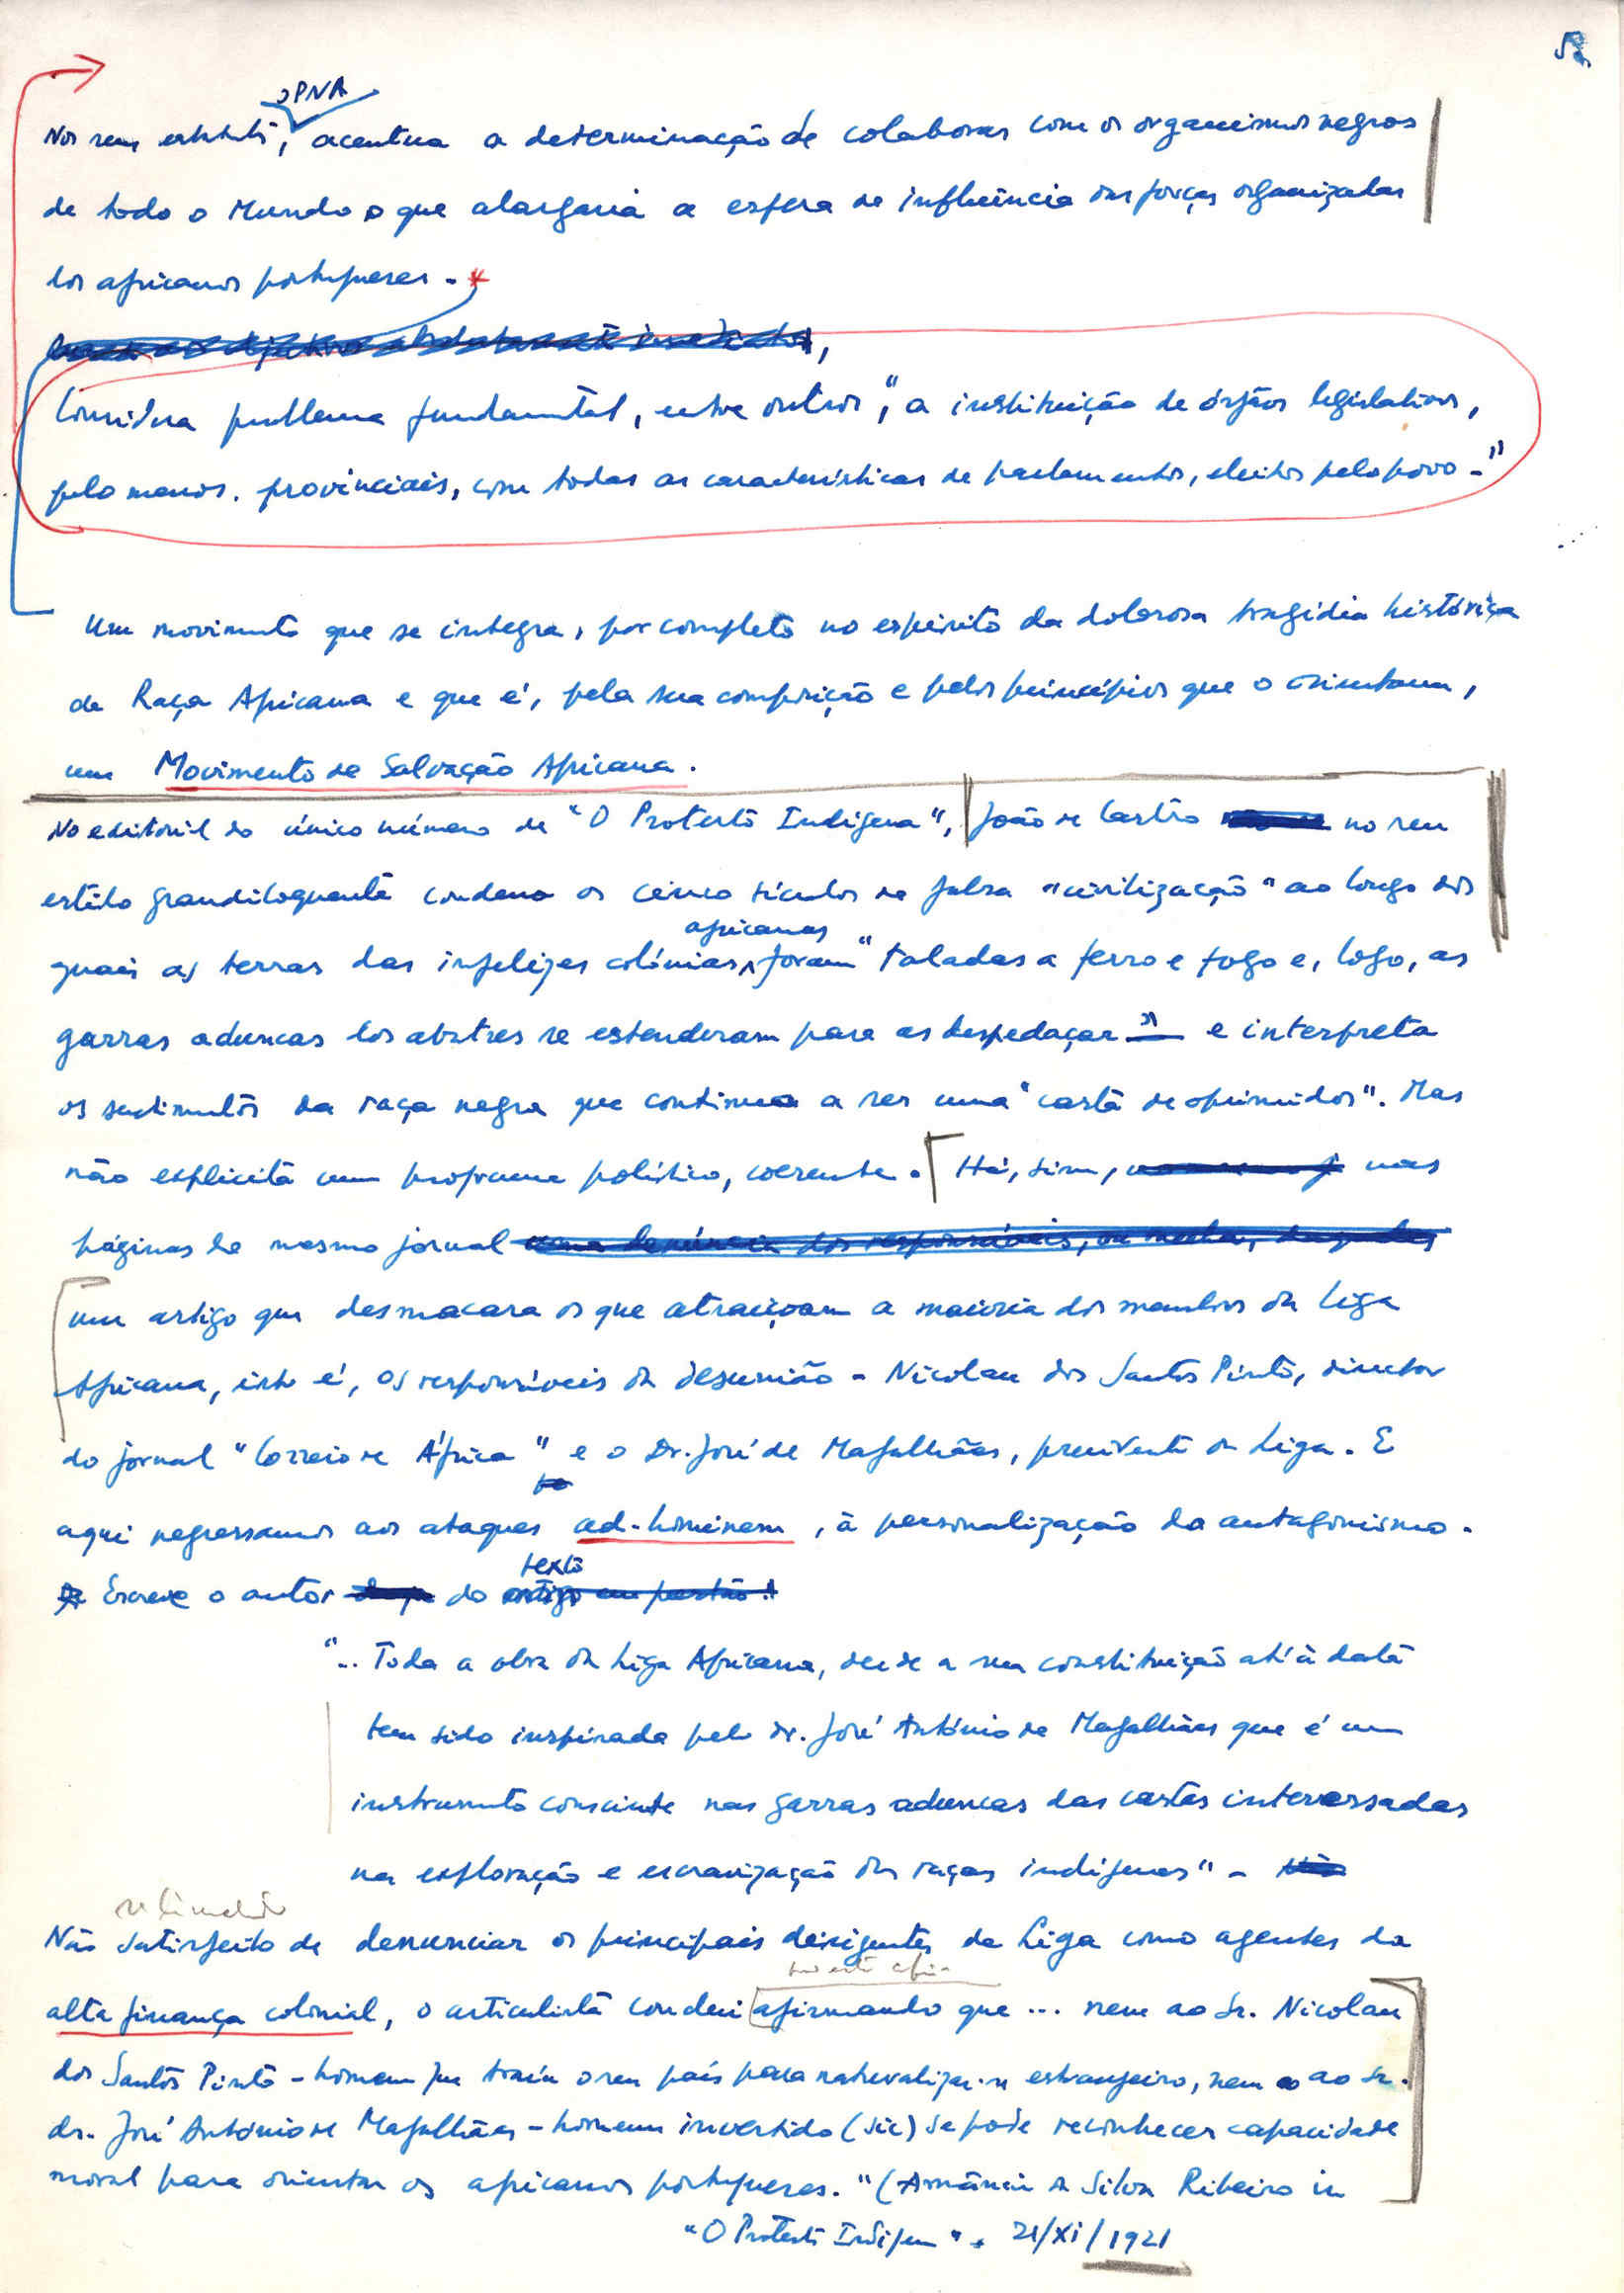 52
o PNA
Nos seus estatutos, acentua a determinação de colaborar com os organismos negros
de todo o Mundo o que alargaria a esfera de influência das forças organizadas
dos africanos portugueses. *
Considera problema fundamental, entre outros, "a instituição de órgãos legislativos,
pelo menos. provinciais, com todas as características de parlamentos, eleitos pelo povo."
Um movimento que se integra, por completo no espírito da dolorosa tragédia histórica
da Raça Africana e que é, pela sua composição e pelos princípios que o orientam,
um Movimento de Salvação Africana.
No editorial do único número de "O Protesto Indígena", João de Castro no seu
estilo grandiloquente condena os cinco séculos de falsa "civilização" ao longo dos
africanas
quais as terras das infelizes colónias, foram "taladas a ferro e fogo e, logo, as
garras aduncas dos abutres se estenderam para as despedaçar" e interpreta
os sentimentos da raça negra que continua a ser uma "casta de oprimidos". Mas
não explicita um programa político, coerente. Há, sim, nas
páginas do mesmo jornal uma denúncia dos responsáveis, ou melhor, daqueles
um artigo que desmacara os que atraiçoam a maioria dos membros da Liga
Africana, isto é, os responsáveis da desunião - Nicolau dos Santos Pinto, director
do jornal "Correio de África" e o Dr. José de Magalhães, presidente da Liga. E
aqui regressamos aos ataques ad-hominem, à personalização do antagonismo.
texto
Escreve o autor do artigo em questão:
"... Toda a obra da Liga Africana, desde a sua constituição até à data
tem sido inspirada pelo dr. José António de Magalhães que é um
instrumento consciente nas garras aduncas das castas interessadas
na exploração e escravização das raças indígenas" - Não
Não satisfeito de denunciar os principais dirigentes da Liga como agentes da
alta finança colonial, o articulista conclui afirmando que ... nem ao Sr. Nicolau
dos Santos Pinto - homem que traiu o seu país para naturalizar-se estrangeiro, nem ao Sr.
dr. José António de Magalhães - homem invertido (sic) se pode reconhecer capacidade
moral para orientar os africanos portugueses." (Amâncio da Silva Ribeiro in
"O Protesto Indígena". 21/XI/1921